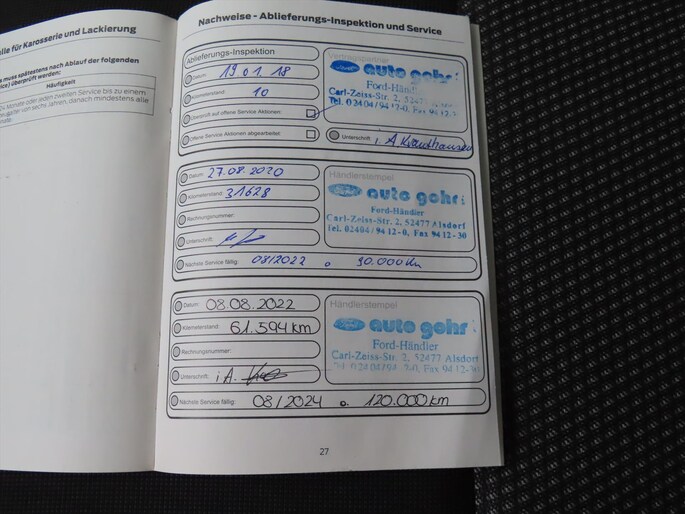 lle für Karosserie und Lackierung
s muss spätestens nach Ablauf der folgenden
ce) überprüft werden:
Häufigkeit
Monate oder jeden zweiten Service bis zu einem
von sechs Jahren, danach mindestens alle
Nachweise - Ablieferungs-Inspektion und Service
Ablieferungs-Inspektion
Datum: 19.01.18
Kilometerstand: 10
Überprüft auf offene Service Aktionen:
Offene Service Aktionen abgearbeitet:
auto gohr
Ford-Händler
Carl-Zeiss-Str. 2, 52477
Tel. 02404/94 12-0, Fax 94 12-
Unterschrift: i. A.
Datum: 27.08.2020
Kilometerstand: 31628
Rechnungsnummer:
Unterschrift:
Händlerstempel
Ford auto gohr
Ford-Händler
Carl-Zeiss-Str. 2, 52477 Alsdorf
Tel. 02404/94 12-0, Fax 94 12-30
Nächste Service fällig: 08/2022 o. 90.000 Km
Datum: 08.08.2022
Kilometerstand: 61.594 km
Rechnungsnummer:
Unterschrift: i.A.
Händlerstempel
Ford auto gohr
Ford-Händler
Carl-Zeiss-Str. 2, 52477 Alsdorf
Tel. 02404/94 12-0, Fax 94 12-30
Nächste Service fällig: 08/2024 o. 120.000 km
27